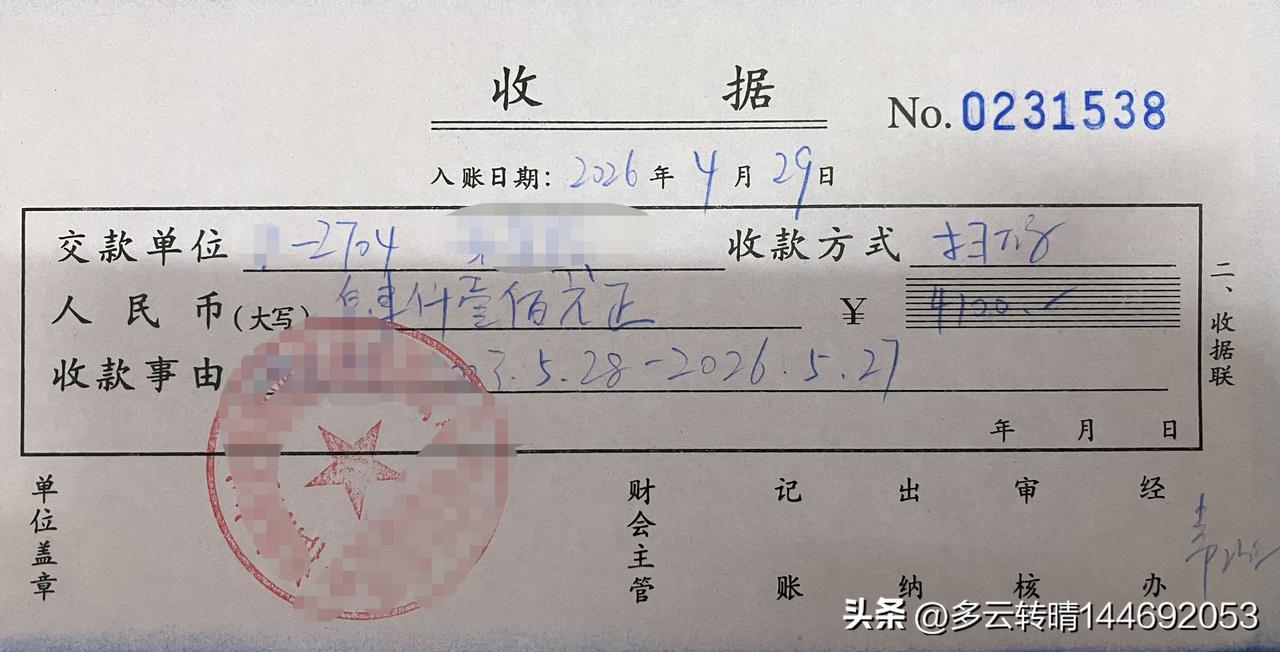 收据
No.0231538
入账日期：2026年4月29日
交款单位 -2704 收款方式 扫码
人民币(大写) 肆仟壹佰元正 ¥ 4100.
收款事由 3.5.28-2026.5.27
年 月 日
二、收据联
单位盖章 财会主管 记账 出纳 审核 经办
头条 @多云转晴144692053